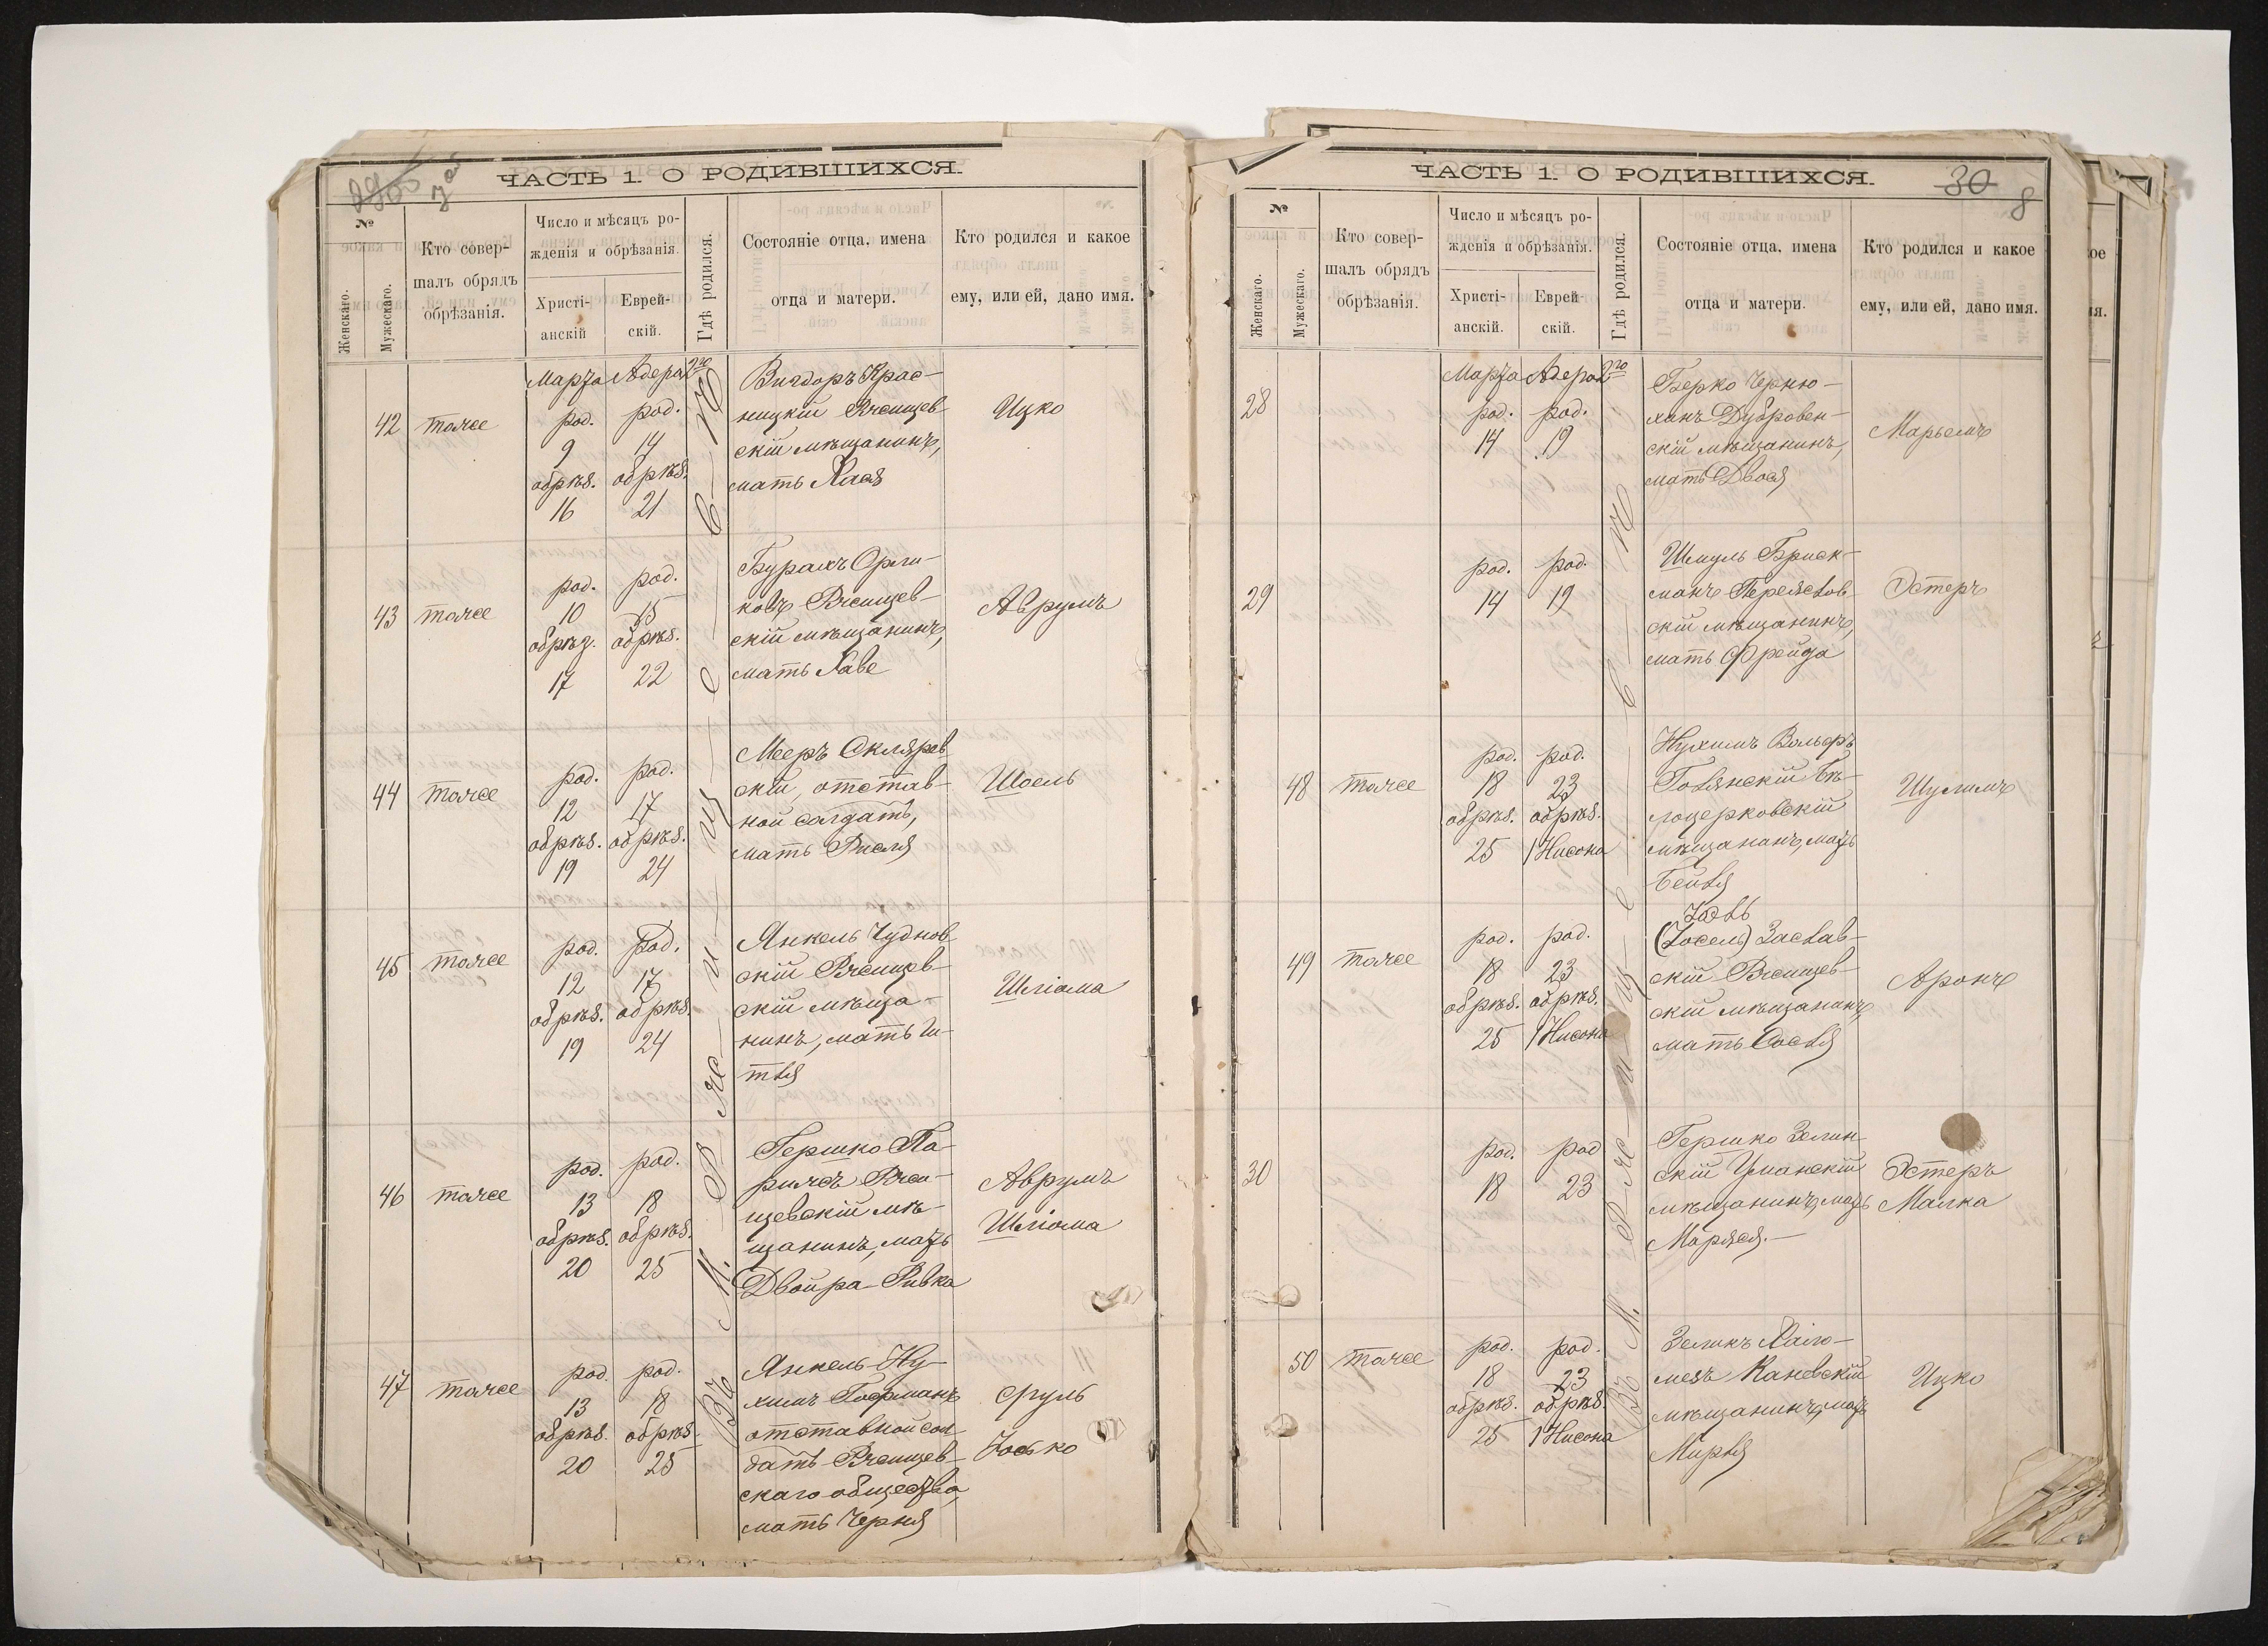 7 об
ЧАСТЬ 1. О РОДИВШИХСЯ.
№
Женскаго.
Мужескаго.
Кто совер-
шалъ обрядъ
обрѣзанія.
Число и мѣсяцъ ро-
жденія и обрѣзанія.
Христі-
анскій
Еврей-
скій.
Гдѣ родился.
Состояніе отца, имена
отца и матери.
Кто родился и какое
ему, или ей, дано имя.
Марта Адера 2го
42 тоже
род. 9 обрѣз. 16
род. 14 обрѣз. 21
Вигдоръ Крас-
ницкій Ржищев-
скій мѣщанинъ,
мать Хася
Ицко
43 тоже
род. 10 обрѣз. 17
род. 15 обрѣз. 22
Бурахъ
Ржищев-
скій мѣщанинъ,
мать Хаве
Аврумъ
44 тоже
род. 12 обрѣз. 19
род. 17 обрѣз. 24
Мееръ Скляров-
скій, отстав-
ной солдатъ,
мать Рисля
Шоель
45 тоже
род. 12 обрѣз. 19
род. 17 обрѣз. 24
Янкель Чуднов-
скій Ржищев-
скій мѣща-
нинъ, мать И-
тля
Шліома
46 тоже
род. 13 обрѣз. 20
род. 18 обрѣз. 25
Гершко Па-
рижъ Ржи-
щевскій мѣ-
щанинъ, мать
Двойра-Ривка
Аврумъ
Шліома
47 тоже
род. 13 обрѣз. 20
род. 18 обрѣз. 25
Янкель-Ну-
химъ Гофманъ
отставной сол-
датъ Ржищев-
скаго общества,
мать Черня
Сруль
Іосько
Въ М. Ржищевѣ
ЧАСТЬ 1. О РОДИВШИХСЯ.
30
8
№
Женскаго.
Мужескаго.
Кто совер-
шалъ обрядъ
обрѣзанія.
Число и мѣсяцъ ро-
жденія и обрѣзанія.
Христі-
анскій.
Еврей-
скій.
Гдѣ родился.
Состояніе отца, имена
отца и матери.
Кто родился и какое
ему, или ей, дано имя.
Марта Адера 2го
28
род. 14
род. 19
Берко Черню-
ханъ Дубровен-
скій мѣщанинъ,
мать Двося
Марьемъ
29
род. 14
род. 19
Шмуль Бриск-
манъ Переяслов-
скій мѣщанинъ,
мать Фрейда
Эстеръ
48 тоже
род. 18 обрѣз. 25
род. 23 обрѣз. 1 Нисона
Нухимъ Вольфъ
Бѣ-
лоцерковскій
мѣщанинъ, мать
Бейля
Шулимъ
49 тоже
род. 18 обрѣз. 25
род. 23 обрѣз. 1 Нисона
(Іосель) Заслав-
скій Ржищев-
скій мѣщанинъ,
мать Сосля
Аронъ
30
род. 18
род 23
Гершко Зелин-
скій Уманскій
мѣщанинъ, мать
Маряся.
Эстеръ
Малка
50 тоже
род. 18 обрѣз. 25
род. 23 обрѣз. 1 Нисона
Зеликъ
Каневскій
мѣщанинъ, мать
Мирля
Ицко
Въ М. Ржищевѣ